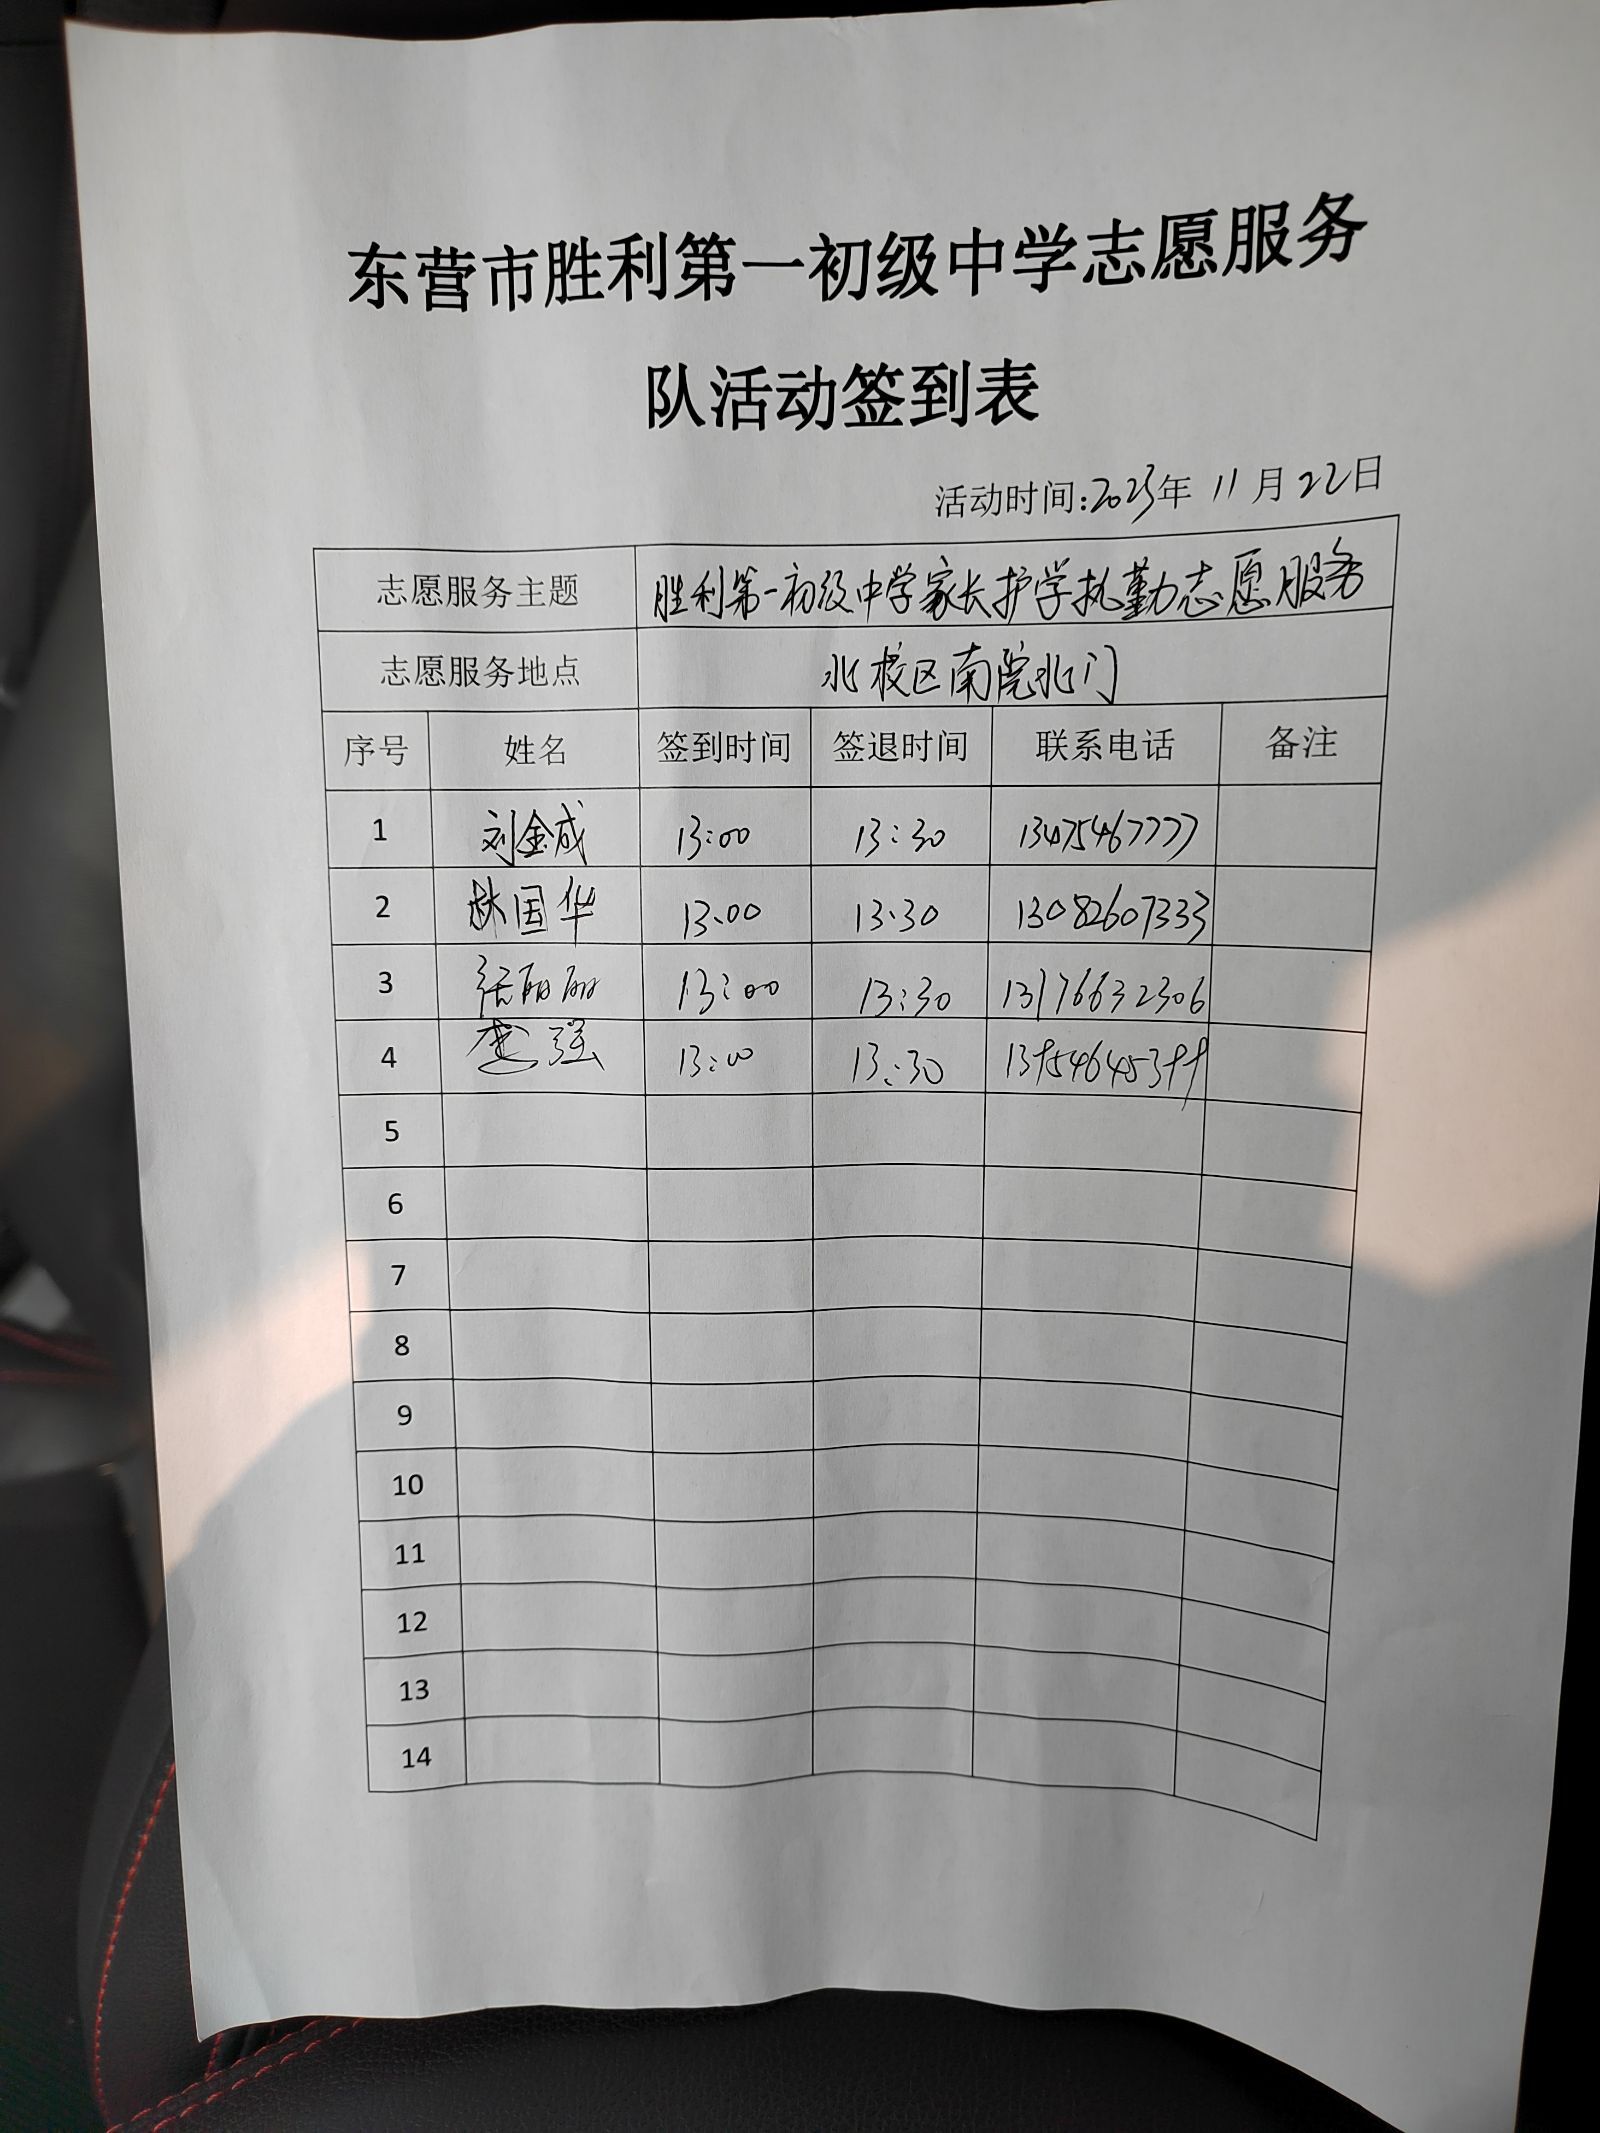 东营市胜利第一初级中学志愿服务
队活动签到表
活动时间:2023年 11月22日
志愿服务主题 胜利第一初级中学家长护学执勤志愿服务
志愿服务地点 北校区南院北门
序号 姓名 签到时间 签退时间 联系电话 备注
1 刘金成 13:00 13:30 13475467777
2 林国华 13:00 13:30 13082607333
3 张丽丽 13:00 13:30 13176632306
4 李强 13:00 13:30
5
6
7
8
9
10
11
12
13
14